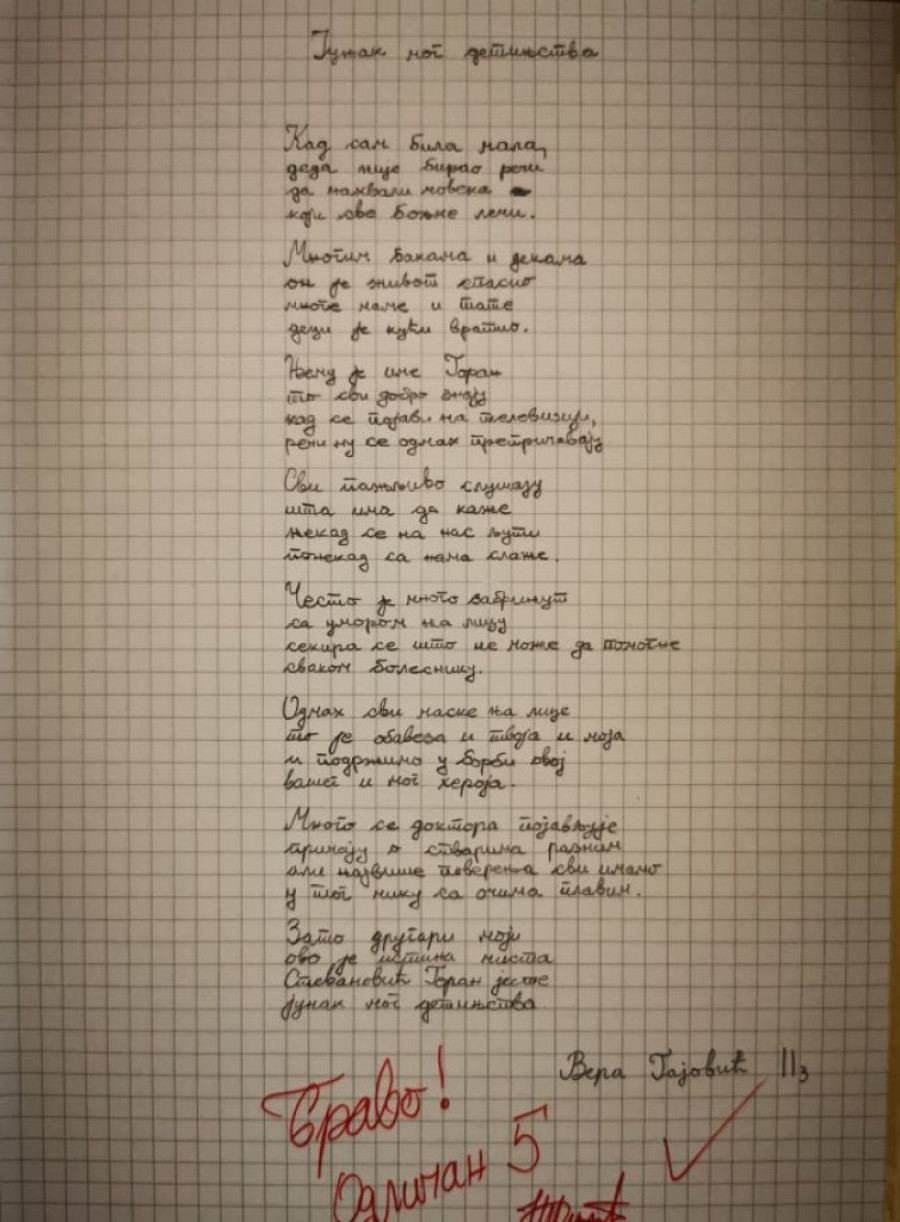 Јунак мог детињства
Кад сам била мала,
деда није бирао речи
да нахвали човека
који све болне лечи.
Многим бакама и декама
он је живот спасио
многе маме и тате
деци је кући вратио.
Њему је име Горан
то сви добро знају
кад се појави на телевизији,
речи му се одмах препричавају
Сви пажљиво слушају
шта има да каже
некад се на нас љути
понекад са нама слаже.
Често је много забринут
са умором на лицу
секира се што не може да помогне
сваком болеснику.
Одмах сви маске на лице
то је обавеза и твоја и моја
и подржимо у борби овој
вашег и мог хероја.
Много се доктора појављује
причају о стварима разним
али највише поверења сви имамо
у тог чику са очима плавим.
Зато другари моји
ово је истина чиста
Стевановић Горан јесте
јунак мог детињства
Вера Гајовић II3
Браво!
Одличан 5